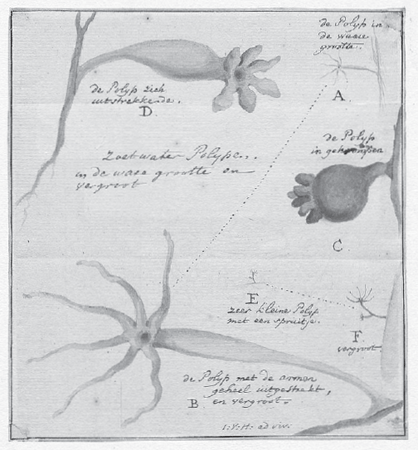 de Polyp in
de waare
grootte.
A.
de Polyp zich
uitstrekkende.
D.
de Polyp
in gekrompen
C
Zoet water Polypen.
in de waare grootte en
vergroot
E
zeer kleine Polyp
met een spruitje.
F.
vergroot.
de Polyp met de armen
geheel uitgestrekt,
B en vergroot.
ad viv.